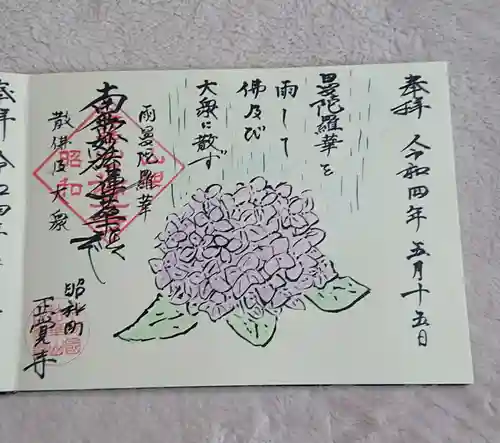 奉拝 令和四年五月十五日
曼陀羅華を
雨して
佛及び
大衆に散ず
雨曼陀羅華
南無妙法蓮華経
散佛及大衆
昭和
昭和町
正覚寺
奉拝 令和四年